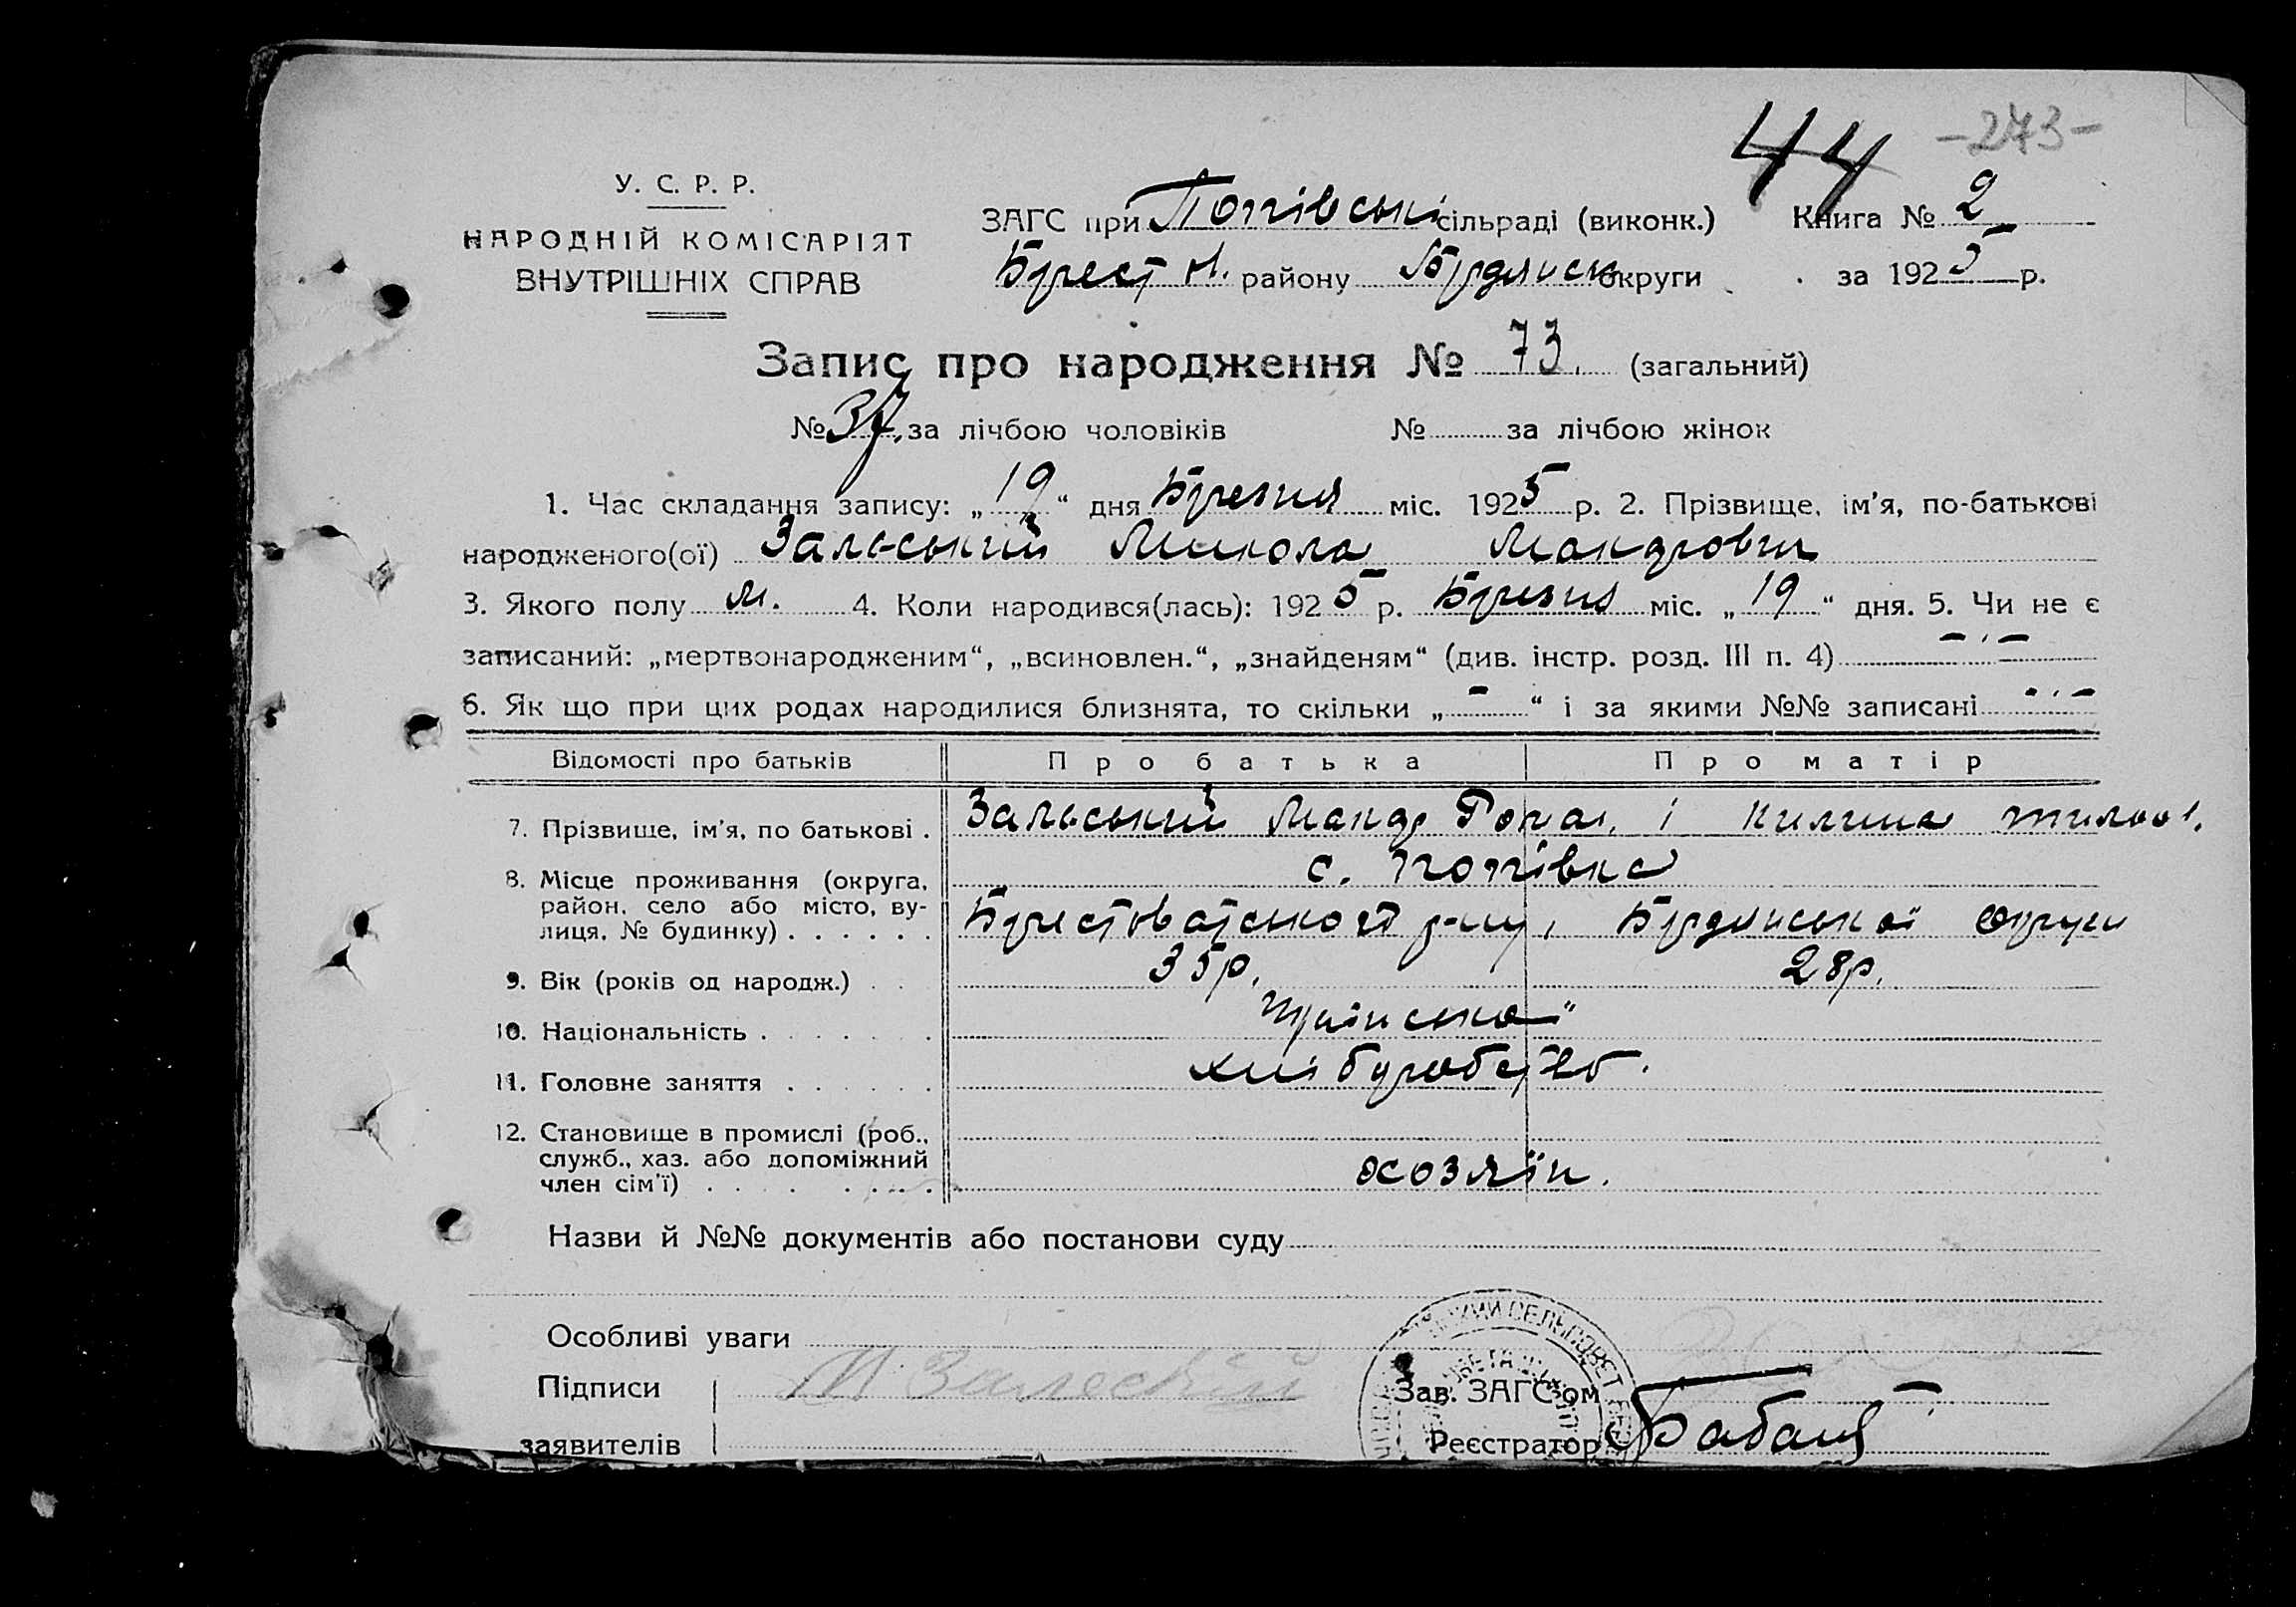 44 -273-
У. С. Р. Р.
НАРОДНІЙ КОМІСАРІЯТ
ВНУТРІШНІХ СПРАВ
ЗАГС при Попівськ сільраді (виконк.) Книга № 2
Берестов. району Бердянськ округи за 1925 р.
Запис про народження № 73. (загальний)
№ 37. за лічбою чоловіків № за лічбою жінок
1. Час складання запису: „19“ дня Березня міс. 1925 р. 2. Прізвище, ім'я, по-батькові
народженого(ої) Зальський Микола
3. Якого полу м. 4. Коли народився(лась): 1925 р. Березня міс. „19“ дня. 5. Чи не є
записаний: „мертвонародженим“, „всиновлен.“, „знайденям“ (див. інстр. розд. III п. 4) - ' -
6. Як що при цих родах народилися близнята, то скільки „-“ і за якими №№ записані - ' -
Відомості про батьків Про батька Про матір
7. Прізвище, ім'я, по батькові . Зальський і Килина
8. Місце проживання (округа, с. Попівка
район, село або місто, ву-
лиця, № будинку) . . . . . . Берестоватського р-ну, Бердянської округи
9. Вік (років од народж.) . . 35р. 28р.
10. Національність . . . . . . .
11. Головне заняття . . . . . . хліборобство.
12. Становище в промислі (роб.,
служб., хаз. або допоміжний
член сім'ї) . . . . . . . . хозяїн.
Назви й №№ документів або постанови суду
Особливі уваги
Підписи М Залеский Зав. ЗАГС'ом
заявителів Реєстратор
СЕЛЬСОВЕТ